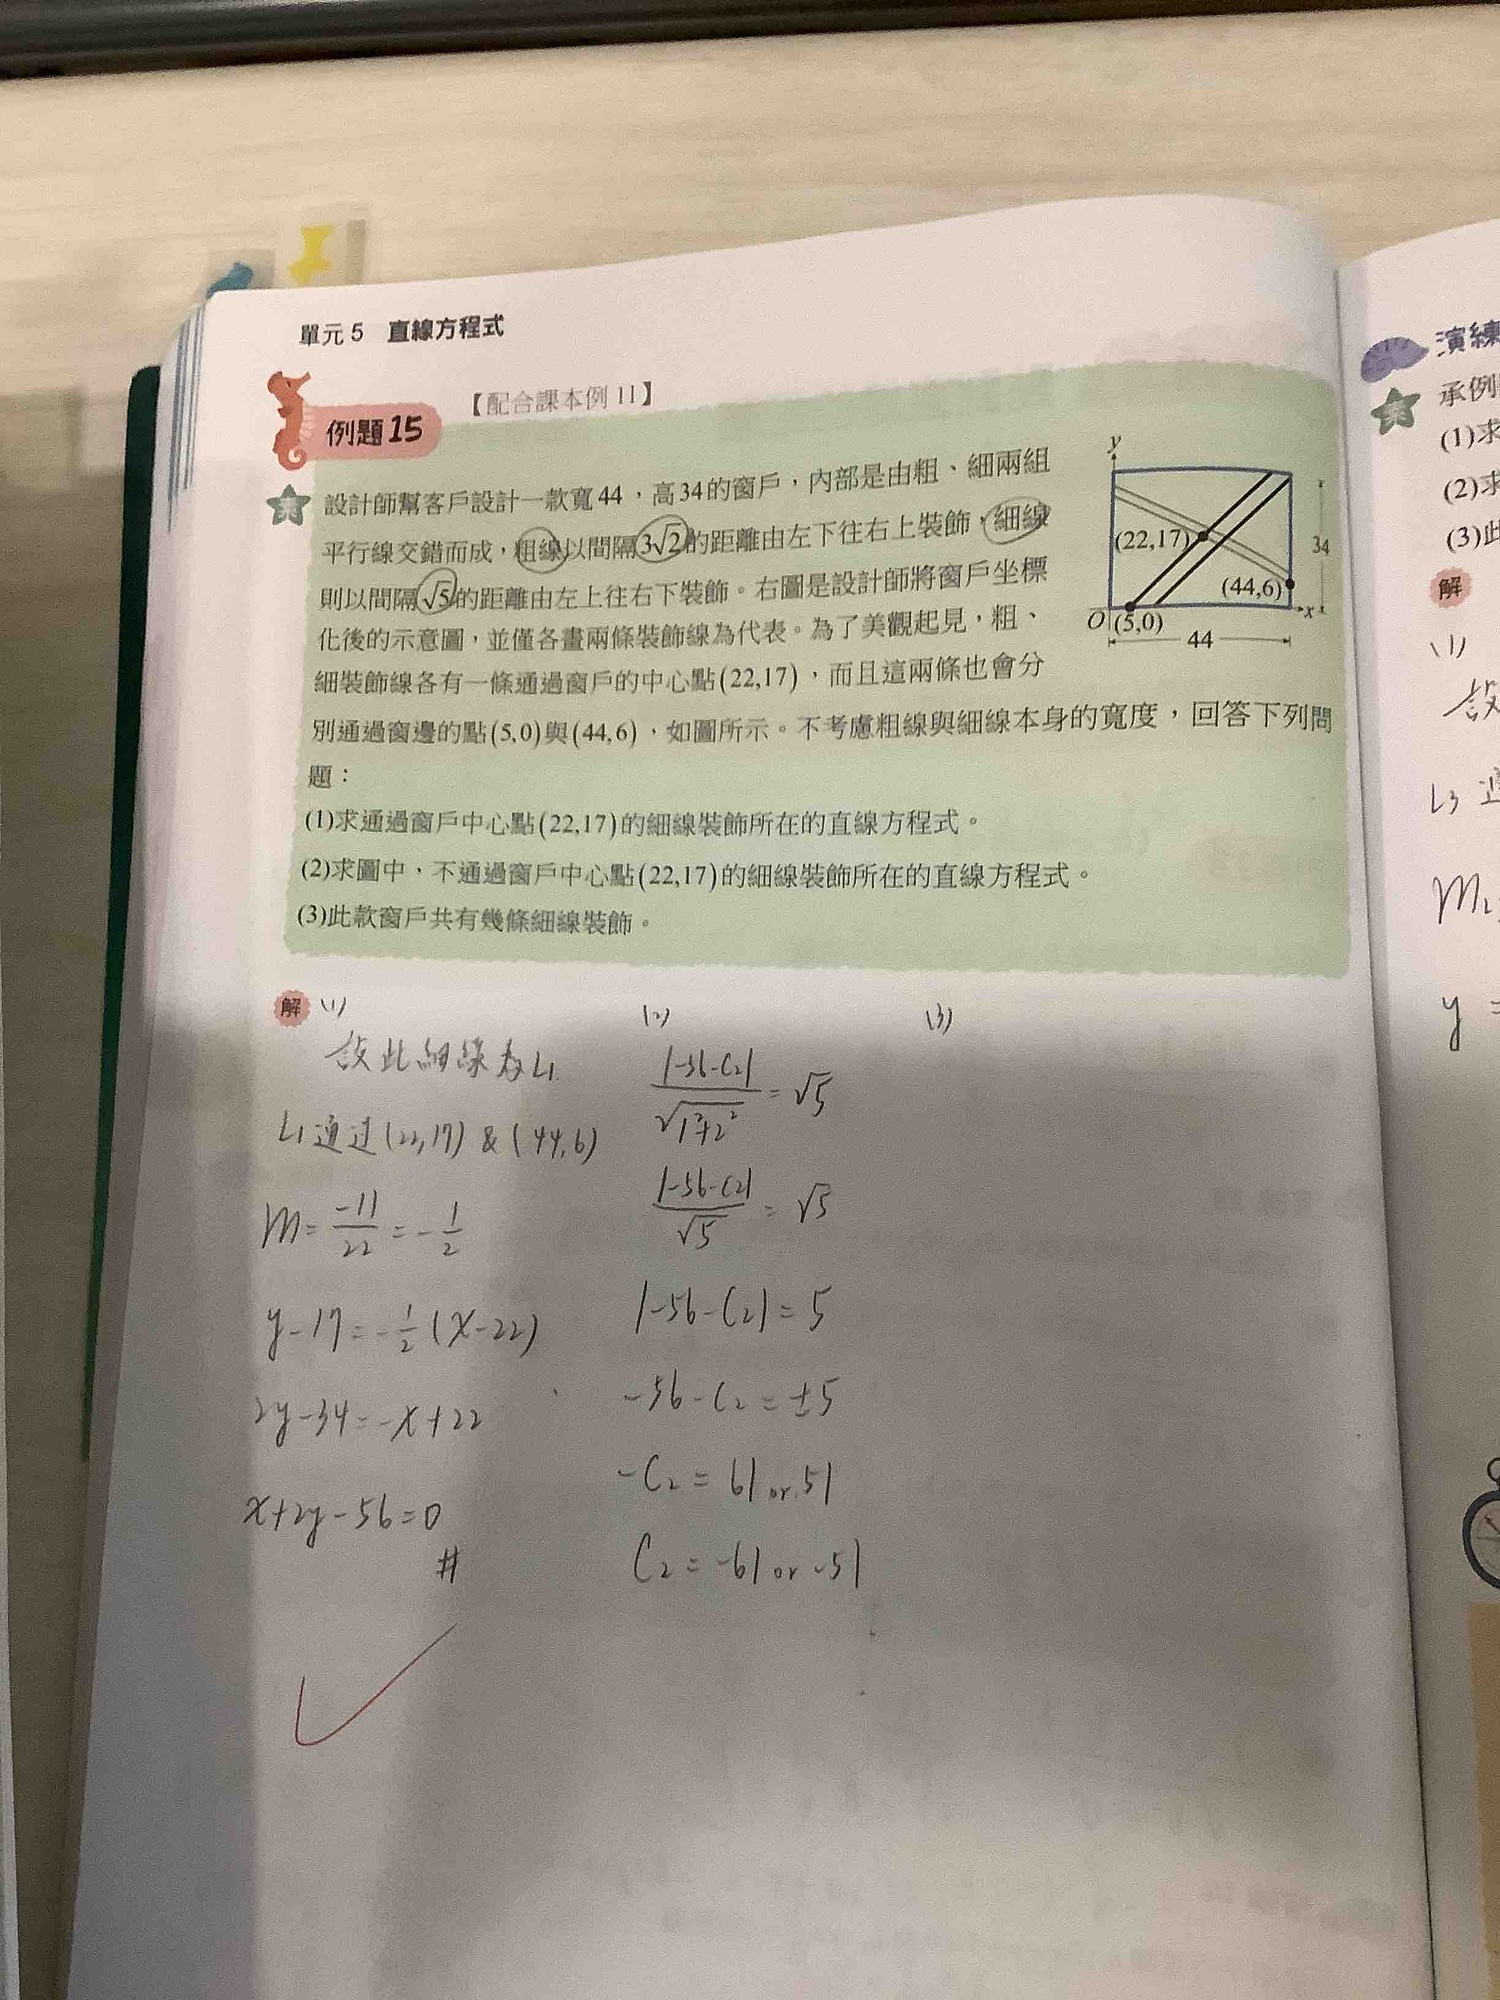 單元 5 直線方程式
【配合課本例 11】
例題15
設計師幫客戶設計一款寬44，高34的窗戶，內部是由粗、細兩組
平行線交錯而成，粗線以間隔3√2的距離由左下往右上裝飾，細線
則以間隔√5的距離由左上往右下裝飾。右圖是設計師將窗戶坐標
化後的示意圖，並僅各畫兩條裝飾線為代表。為了美觀起見，粗、
細裝飾線各有一條通過窗戶的中心點(22,17)，而且這兩條也會分
別通過窗邊的點(5,0)與(44,6)，如圖所示。不考慮粗線與細線本身的寬度，回答下列問
題：
(1)求通過窗戶中心點(22,17)的細線裝飾所在的直線方程式。
(2)求圖中，不通過窗戶中心點(22,17)的細線裝飾所在的直線方程式。
(3)此款窗戶共有幾條細線裝飾。
y
(22,17)
34
(44,6)
O
(5,0)
x
44
解 (1)
設此細線為L1
L1通过(22,17) & (44,6)
m = -11/22 = -1/2
y-17 = -1/2 (x-22)
2y-34 = -x+22
x+2y-56=0
#
(2)
|-56-C2| / √1²+2² = √5
|-56-C2| / √5 = √5
|-56-C2| = 5
-56-C2 = ±5
-C2 = 61 or 51
C2 = -61 or -51
(3)
演練
承例
(1)求
(2)求
(3)此
解
(1)
設
L3
y =